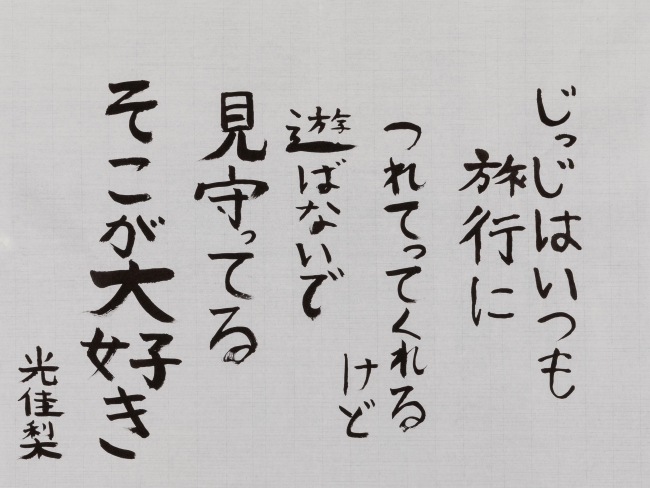 じっじはいつも
旅行に
つれてってくれる
けど
遊ばないで
見守ってる
そこが大好き
光佳梨